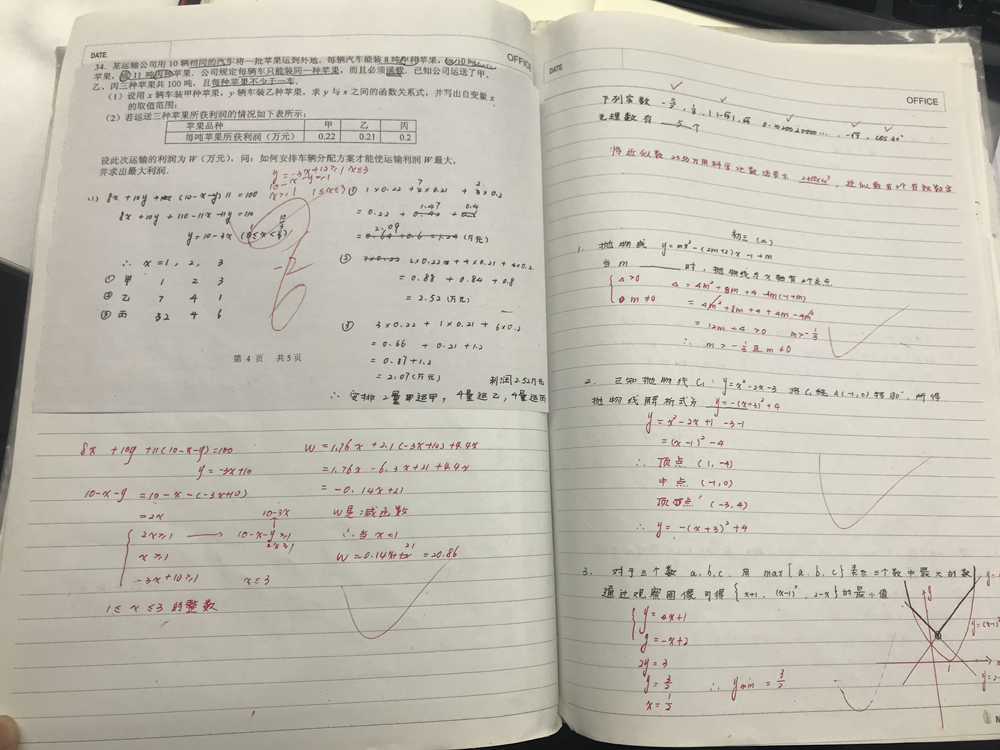 DATE
OFFICE
34. 某运输公司用 10 辆相同的汽车将一批苹果运到外地,每辆汽车能装 8 吨甲种苹果,或10吨
苹果,或 11 吨丙种苹果.公司规定每辆车只能装同一种苹果,而且必须满载.已知公司运送了甲、
乙、丙三种苹果共 100 吨,且每种苹果不少于一车.
(1)设用 x 辆车装甲种苹果,y 辆车装乙种苹果,求 y 与 x 之间的函数关系式,并写出自变量 x
的取值范围;
(2)若运送三种苹果所获利润的情况如下表所示:
苹果品种 甲 乙 丙
每吨苹果所获利润(万元) 0.22 0.21 0.2
设此次运输的利润为 W(万元),问:如何安排车辆分配方案才能使运输利润 W 最大,
并求出最大利润.
y=-3x+10≥1 x≤3
10-x-y≥1
x≥1 1≤x≤3
(1) 8x+10y+(10-x-y)11=100
8x+10y+110-11x-11y=110
y=10-3x
∴ x=1, 2, 3
① 甲 1 2 3
② 乙 7 4 1
③ 丙 32 4 6
-2
① 1×0.22+7×0.21+2×0.2
=0.22+1.47+0.4
2.09
(万元)
② 2×0.22+4×0.21+4×0.2
=0.88+0.84+0.8
=2.52(万元)
③ 3×0.22+1×0.21+6×0.2
=0.66+0.21+1.2
=0.87+1.2
=2.07(万元)
利润2.52万元
∴ 安排2量甲运甲,4量运乙,4量运丙
第 4 页 共 5 页
8x+10y+11(10-x-y)=100
y=-3x+10
10-x-y=10-x-(-3x+10)
=2x
2x≥1 → 10-x-y≥1
10-3x
2x≥1
x≥1
-3x+10≥1 x≤3
1≤x≤3的整数
W=1.76x+2.1(-3x+10)+4.4x
=1.76x-6.3x+21+4.4x
=-0.14x+21
W是减函数
∴当 x=1
W=0.14x+21=20.86
DATE
OFFICE
下列实数
无理数有 5 个
将近似数2350万用科学记数法表示
初三(2)
1. 抛物线 y=mx²-(2m+2)x-1+m
当m ______ 时,抛物线与x轴有2个交点
△>0 △=4m²+8m+4-4m(-1+m)
m≠0 =4m²+8m+4+4m-4m²
=12m+4>0 m>-1/3
∴ m>-1/3且m≠0
2. 已知抛物线C₁:y=x²-2x-3 将C₁绕A(-1,0)转180°,所得
抛物线解析式为 y=-(x+3)²+4
y=x²-2x+1-3-1
=(x-1)²-4
∴ 顶点(1,-4)
中点(-1,0)
顶点'(-3,4)
∴ y=-(x+3)²+4
3. 对于三个数a,b,c,用max{a,b,c}表示三个数中最大的数
通过观察图像可得{x+1,(x-1)²,2-x}的最小值
y=x+1
y=-x+2
2y=3
y=3/2 ∴ ymin=3/2
x=1/2
y
y=(x-1)²
1